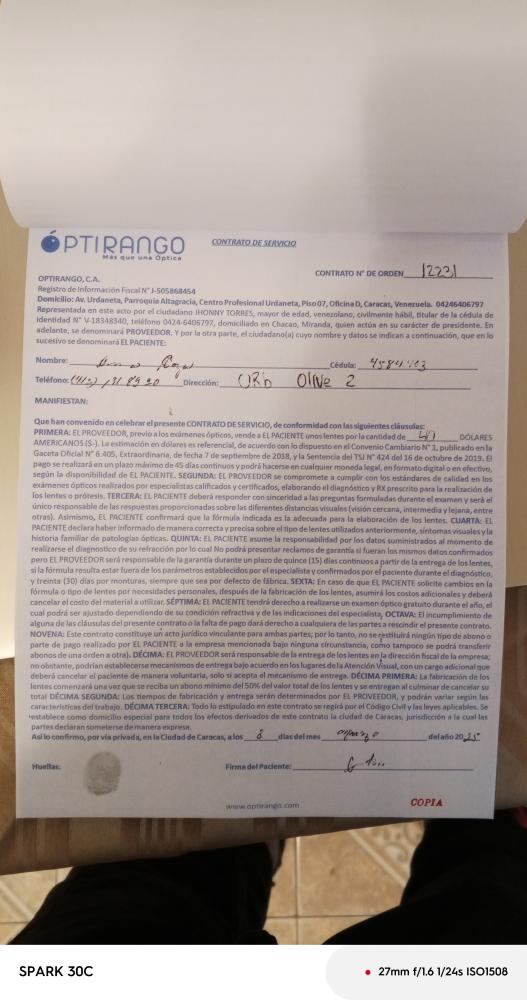 ÓPTIRANGO
Más que una Óptica
CONTRATO DE SERVICIO
CONTRATO N° DE ORDEN 12231
OPTIRANGO, C.A.
Registro de Información Fiscal N° J-505868454
Domicilio: Av. Urdaneta, Parroquia Altagracia, Centro Profesional Urdaneta, Piso 07, Oficina D, Caracas, Venezuela. 04246406797
Representada en este acto por el ciudadano JHONNY TORRES, mayor de edad, venezolano, civilmente hábil, titular de la cédula de
identidad N° V-18348340, teléfono 0424-6406797, domiciliado en Chacao, Miranda, quien actúa en su carácter de presidente. En
adelante, se denominará PROVEEDOR. Y por la otra parte, el ciudadano(a) cuyo nombre y datos se indican a continuación, que en lo
sucesivo se denominará EL PACIENTE:
Nombre: Cédula:
Teléfono: Dirección: URb OlIVe 2
MANIFIESTAN:
Que han convenido en celebrar el presente CONTRATO DE SERVICIO, de conformidad con las siguientes cláusulas:
PRIMERA: EL PROVEEDOR, previo a los exámenes ópticos, vende a EL PACIENTE unos lentes por la cantidad de 40 DÓLARES
AMERICANOS ($-). La estimación en dólares es referencial, de acuerdo con lo dispuesto en el Convenio Cambiario N° 1, publicado en la
Gaceta Oficial N° 6.405, Extraordinaria, de fecha 7 de septiembre de 2018, y la Sentencia del TSJ N° 424 del 16 de octubre de 2019. El
pago se realizará en un plazo máximo de 45 días continuos y podrá hacerse en cualquier moneda legal, en formato digital o en efectivo,
según la disponibilidad de EL PACIENTE. SEGUNDA: EL PROVEEDOR se compromete a cumplir con los estándares de calidad en los
exámenes ópticos realizados por especialistas calificados y certificados, elaborando el diagnóstico y RX prescrito para la realización de
los lentes o prótesis. TERCERA: EL PACIENTE deberá responder con sinceridad a las preguntas formuladas durante el examen y será el
único responsable de las respuestas proporcionadas sobre las diferentes distancias visuales (visión cercana, intermedia y lejana, entre
otras). Asimismo, EL PACIENTE confirmará que la fórmula indicada es la adecuada para la elaboración de los lentes. CUARTA: EL
PACIENTE declara haber informado de manera correcta y precisa sobre el tipo de lentes utilizados anteriormente, síntomas visuales y la
historia familiar de patologías ópticas. QUINTA: EL PACIENTE asume la responsabilidad por los datos suministrados al momento de
realizarse el diagnostico de su refracción por lo cual No podrá presentar reclamos de garantía si fueran los mismos datos confirmados
pero EL PROVEEDOR será responsable de la garantía durante un plazo de quince (15) días continuos a partir de la entrega de los lentes,
si la fórmula resulta estar fuera de los parámetros establecidos por el especialista y confirmados por el paciente durante el diagnóstico,
y treinta (30) días por monturas, siempre que sea por defecto de fábrica. SEXTA: En caso de que EL PACIENTE solicite cambios en la
fórmula o tipo de lentes por necesidades personales, después de la fabricación de los lentes, asumirá los costos adicionales y deberá
cancelar el costo del material a utilizar. SÉPTIMA: EL PACIENTE tendrá derecho a realizarse un examen óptico gratuito durante el año, el
cual podrá ser ajustado dependiendo de su condición refractiva y de las indicaciones del especialista. OCTAVA: El incumplimiento de
alguna de las cláusulas del presente contrato o la falta de pago dará derecho a cualquiera de las partes a rescindir el presente contrato.
NOVENA: Este contrato constituye un acto jurídico vinculante para ambas partes; por lo tanto, no se restituirá ningún tipo de abono o
parte de pago realizado por EL PACIENTE a la empresa mencionada bajo ninguna circunstancia, como tampoco se podrá transferir
abonos de una orden a otra). DÉCIMA: EL PROVEEDOR será responsable de la entrega de los lentes en la dirección fiscal de la empresa;
no obstante, podrían establecerse mecanismos de entrega bajo acuerdo en los lugares de la Atención Visual, con un cargo adicional que
deberá cancelar el paciente de manera voluntaria, solo si acepta el mecanismo de entrega. DÉCIMA PRIMERA: La fabricación de los
lentes comenzará una vez que se reciba un abono mínimo del 50% del valor total de los lentes y se entregan al culminar de cancelar su
total DÉCIMA SEGUNDA: Los tiempos de fabricación y entrega serán determinados por EL PROVEEDOR, y podrán variar según las
características del trabajo. DÉCIMA TERCERA: Todo lo estipulado en este contrato se regirá por el Código Civil y las leyes aplicables. Se
establece como domicilio especial para todos los efectos derivados de este contrato la ciudad de Caracas, jurisdicción a la cual las
partes declaran someterse de manera expresa.
Así lo confirmo, por vía privada, en la Ciudad de Caracas, a los 8 días del mes marzo del año 2025
Huellas: Firma del Paciente:
www.optirango.com
COPIA
SPARK 30C
27mm f/1.6 1/24s ISO1508